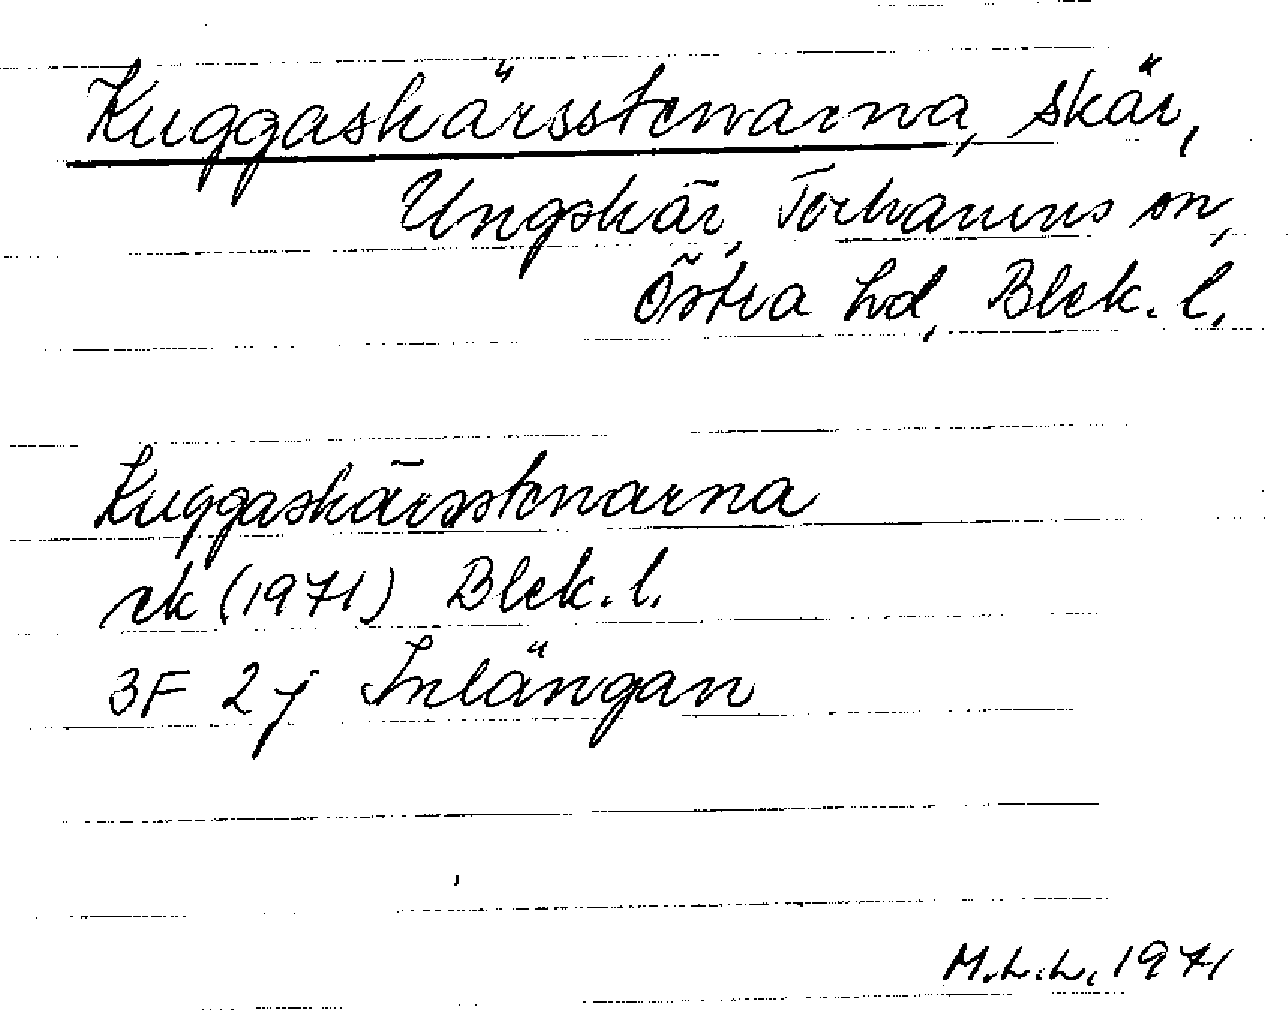 Kuggaskärsstenarna, skär,
Ungskär, Torhamns sn,
Östra hd, Blek. l.
Kuggaskärsstenarna
rk (1971) Blek. l.
3F 2j Inlängan
M.L.L. 1971